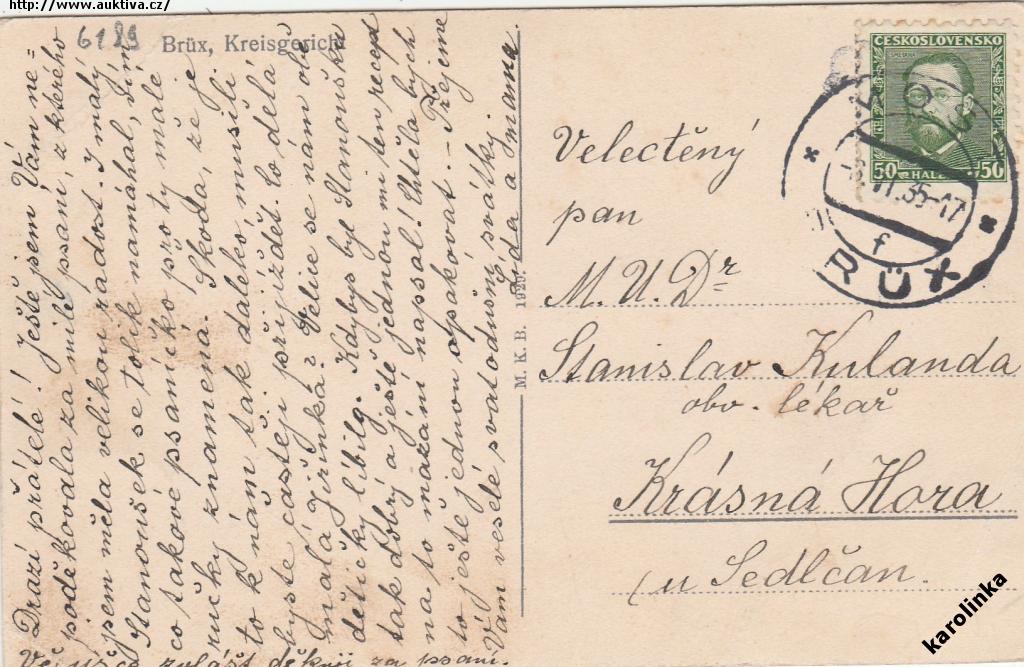 http://www.auktiva.cz/
6189
Brüx, Kreisgericht
Drazí přátelé! Ještě jsem Vám ne=
poděkovala za milé psaní, z kterého
jsem měla velikou radost. I malý
Stanoušek se tolik namáhal, vím
co takové psaníčko pro ty malé
ručky znamená. Škoda, že je
to k nám tak daleko, musili
byste častěj přijíždět. Co dělá
malá Jiřinka? Velice se nám obě
dětičky líbily. Kdyby byl Stanoušku
tak dobrý a ještě jednou mi ten recept
na to mazání napsal! Chtěla bych
to ještě jednou opakovat. – Přejeme
Vám veselé svatodušní svátky.
Lída a
Věrušce zvlášť děkuji za psaní.
M. K. B. 1929.
ČESKOSLOVENSKO
50 HAL 50
MOS
35-17
f
BRÜX
Velectěný
pan
M. U. Dr
Stanislav Kulanda
obv. lékař
Krásná Hora
u Sedlčan.
karolinka